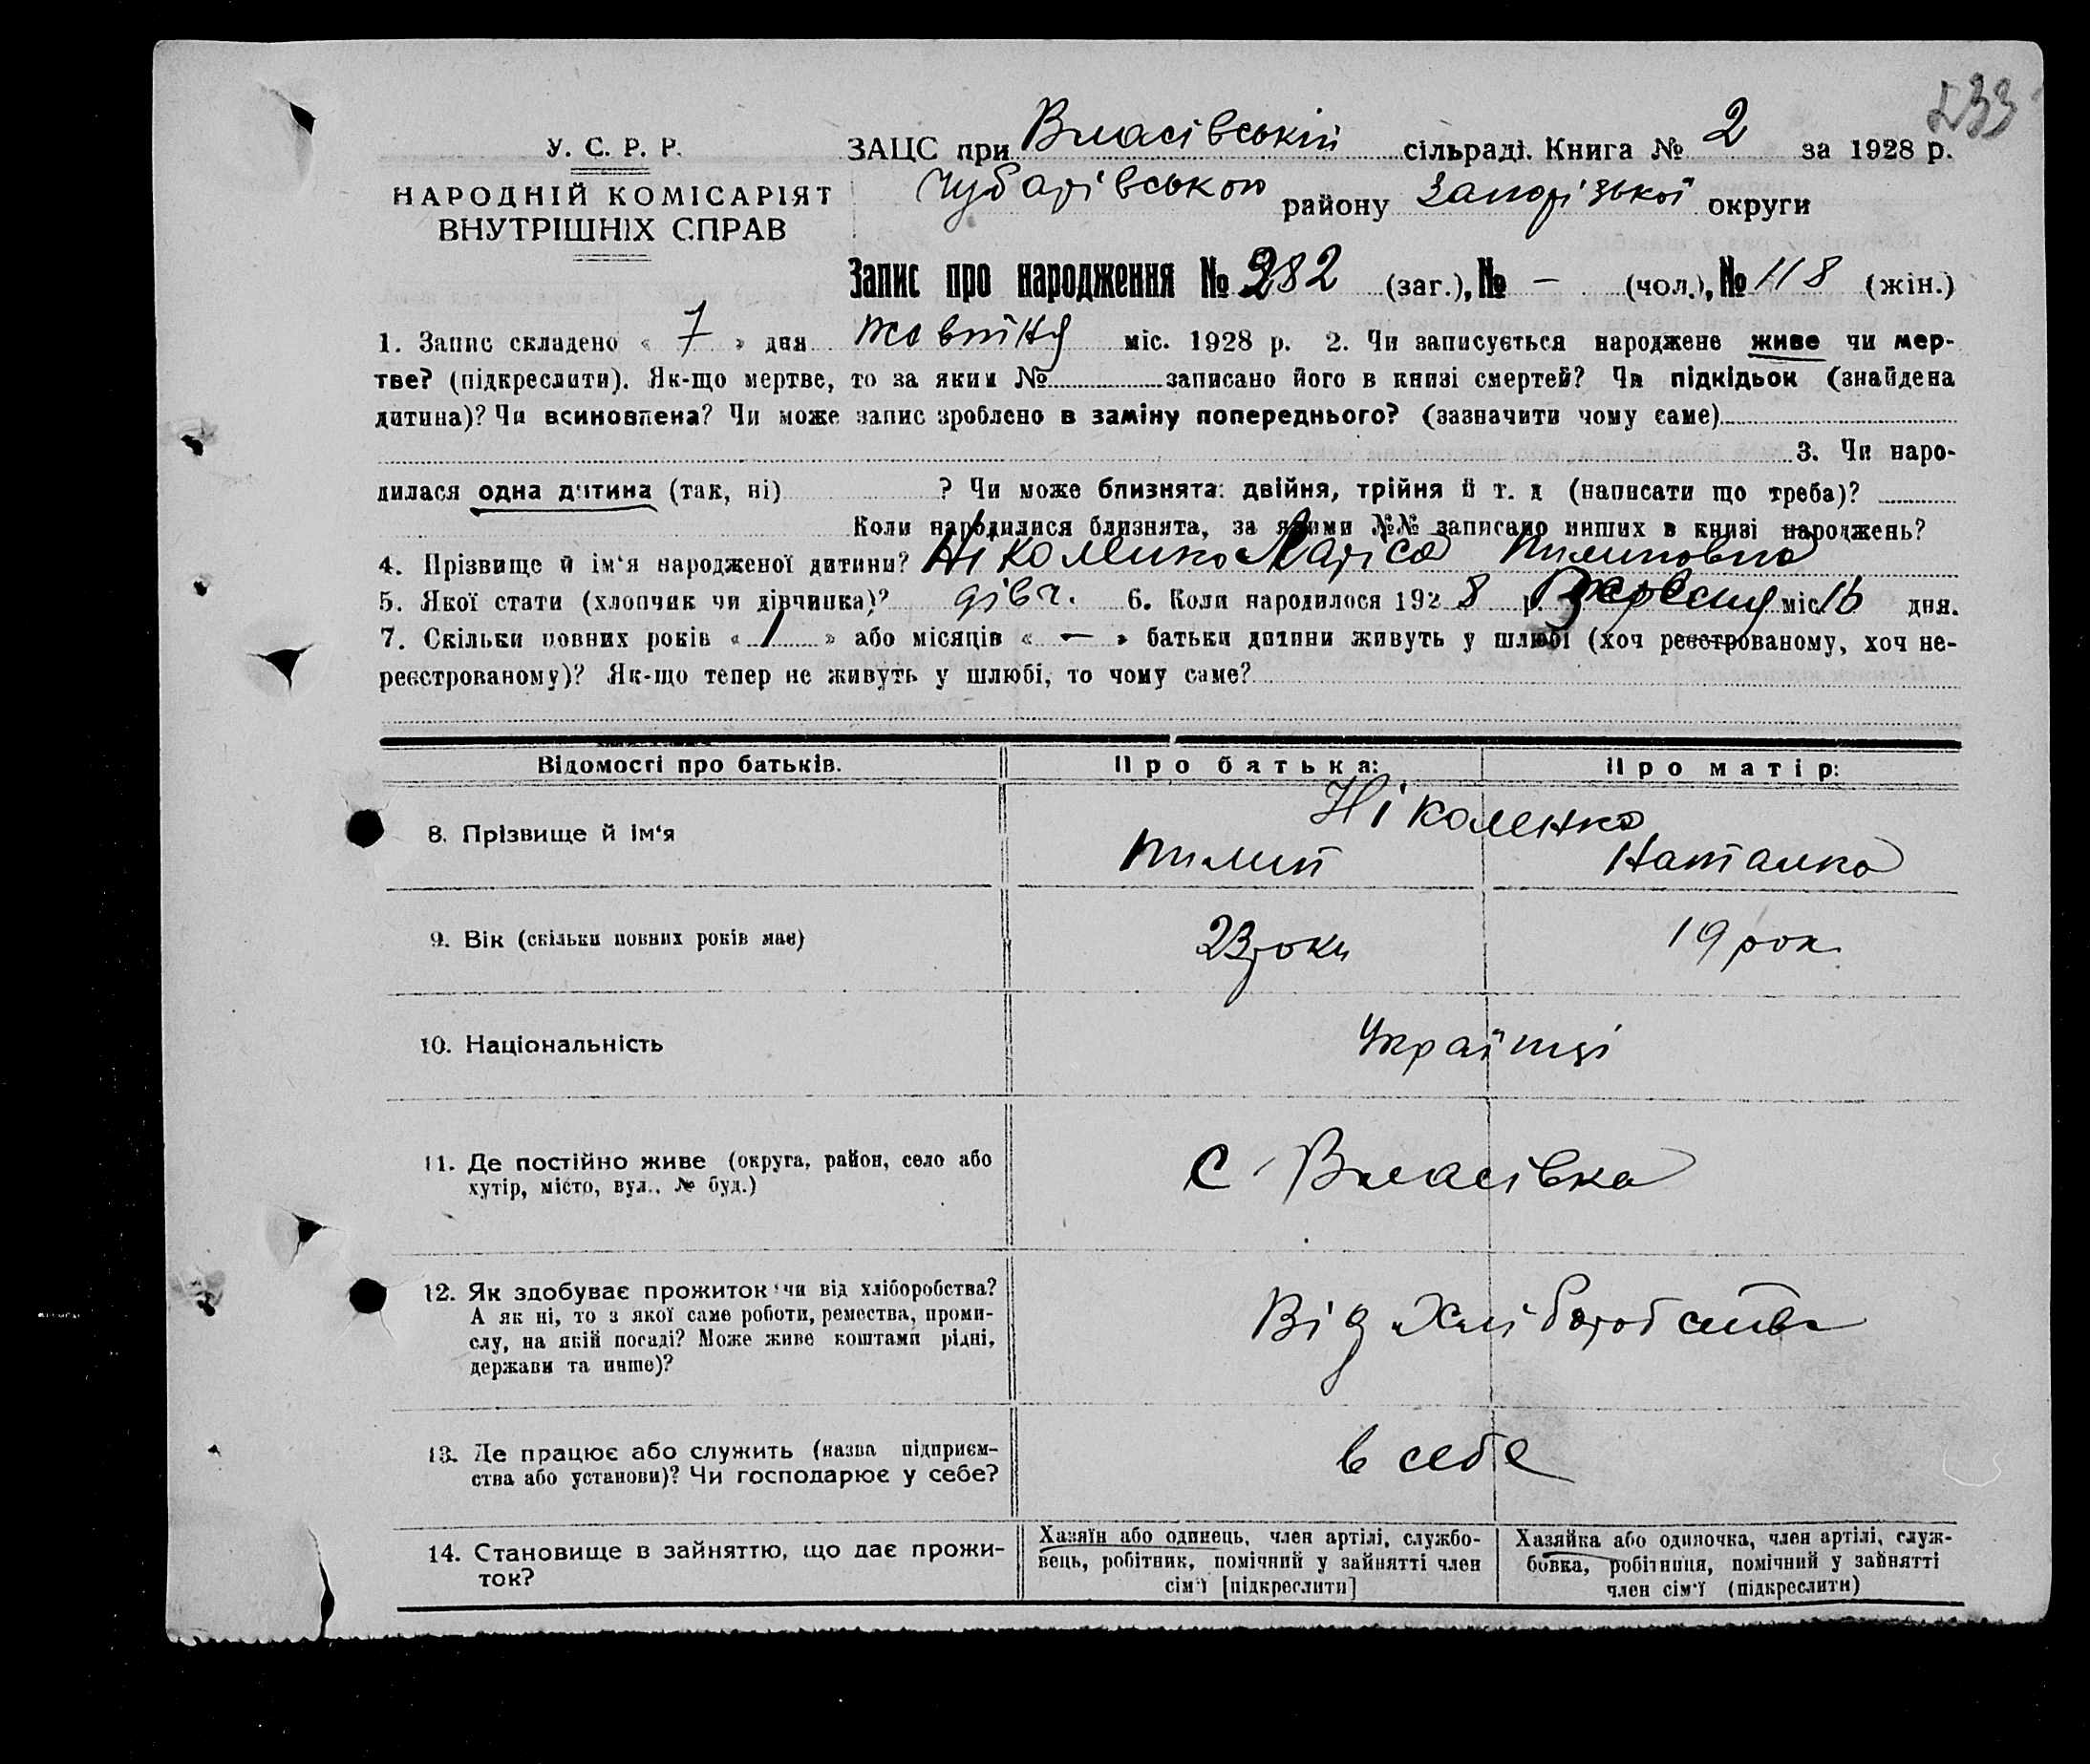 533
У. С. Р. Р.
НАРОДНІЙ КОМІСАРІЯТ
ВНУТРІШНІХ СПРАВ
ЗАЦС при Власівській сільраді. Книга № 2 за 1928 р.
Чубарівського району Запорізької округи
Запис про народження № 282 (заг.), № — (чол.), № 118 (жін.)
1. Запис складено « 7 » дня жовтня міс. 1928 р. 2. Чи записується народжене живе чи мер-
тве? (підкреслити). Як-що мертве, то за яким № записано його в книзі смертей? Чи підкідьок (знайдена
дитина)? Чи всиновлена? Чи може запис зроблено в заміну попереднього? (зазначити чому саме)
3. Чи наро-
дилася одна дитина (так, ні) ? Чи може близнята: двійня, трійня й т. д (написати що треба)?
Коли народилися близнята, за якими №№ записано инших в книзі народжень?
4. Прізвище й ім‘я народженої дитини? Ніколенко Ларіса Пилиповна
5. Якої стати (хлопчик чи дівчинка)? дівч. 6. Коли народилося 1928 р. Вересня міс 16 дня.
7. Скільки повних років « 1 » або місяців « — » батьки дитини живуть у шлюбі (хоч реєстрованому, хоч не-
реєстрованому)? Як-що тепер не живуть у шлюбі, то чому саме?
Відомості про батьків. Про батька: Про матір:
Ніколенко
8. Прізвище й ім‘я Пилип Наталка
9. Вік (скільки повних років має) 23 роки 19 рок.
10. Національність Українці
11. Де постійно живе (округа, район, село або
хутір, місто, вул., № буд.) С. Власівка
12. Як здобуває прожиток чи від хліборобства?
А як ні, то з якої саме роботи, ремества, проми-
слу, на якій посаді? Може живе коштами рідні,
держави та инше)? Від хліборобства
13. Де працює або служить (назва підприєм-
ства або установи)? Чи господарює у себе? в себе
14. Становище в зайняттю, що дає прожи-
ток?
Хазяїн або одинець, член артілі, службо-
вець, робітник, помічний у зайнятті член
сім‘ї [підкреслити]
Хазяйка або одиночка, член артілі, служ-
бовка, робітниця, помічний у зайнятті
член сім‘ї (підкреслити)